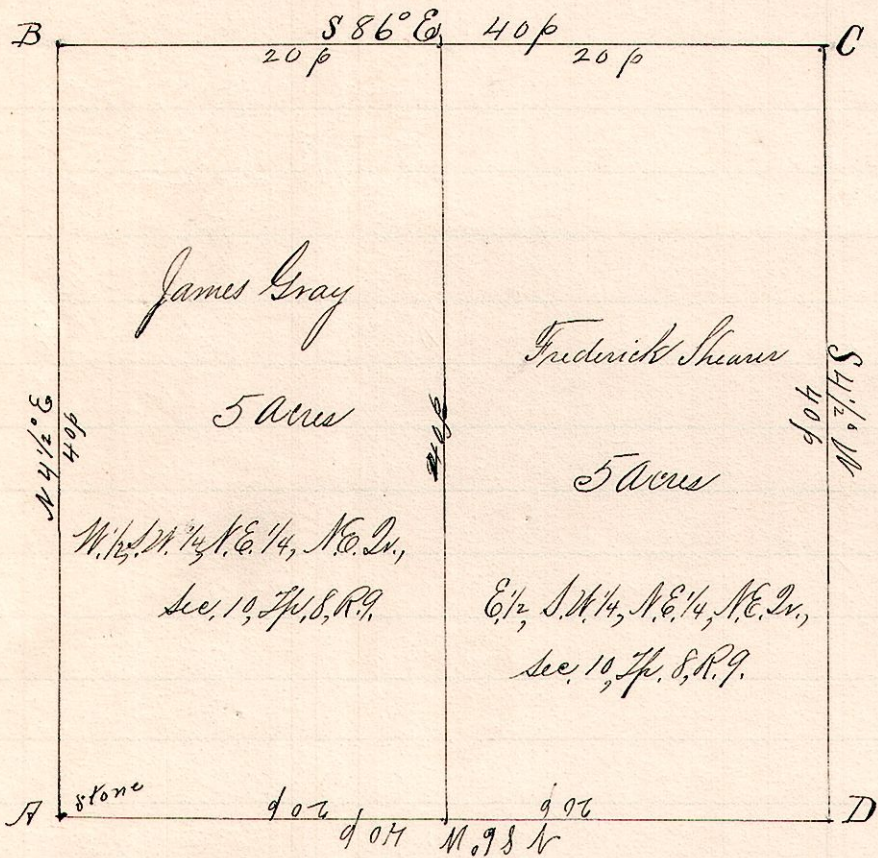 B S 86° E 40p C
20p 20p
James Gray
5 Acres
W. 1/2, S.W. 1/4, N.E. 1/4, N.E. Qr.,
Sec. 10, Tp. 8, R. 9.
N 4 1/2° E
40p
40p
Frederick Shearer
5 Acres
E. 1/2, S.W. 1/4, N.E. 1/4, N.E. Qr.,
Sec. 10, Tp. 8, R. 9.
S 4 1/2° W
40p
A stone D
20p 20p
N 86° W 40p